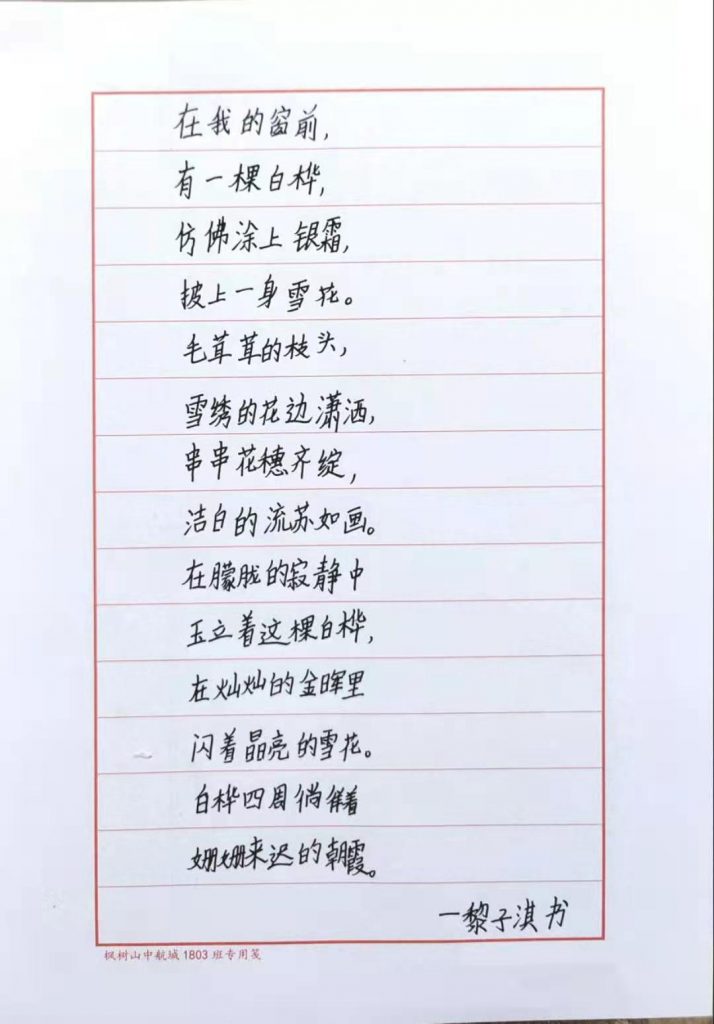 在我的窗前，
有一棵白桦，
仿佛涂上银霜，
披上一身雪花。
毛茸茸的枝头，
雪绣的花边潇洒，
串串花穗齐绽，
洁白的流苏如画。
在朦胧的寂静中
玉立着这棵白桦，
在灿灿的金晖里
闪着晶亮的雪花。
白桦四周徜徉着
姗姗来迟的朝霞。
一黎子淇书
枫树山中航城1803班专用笺